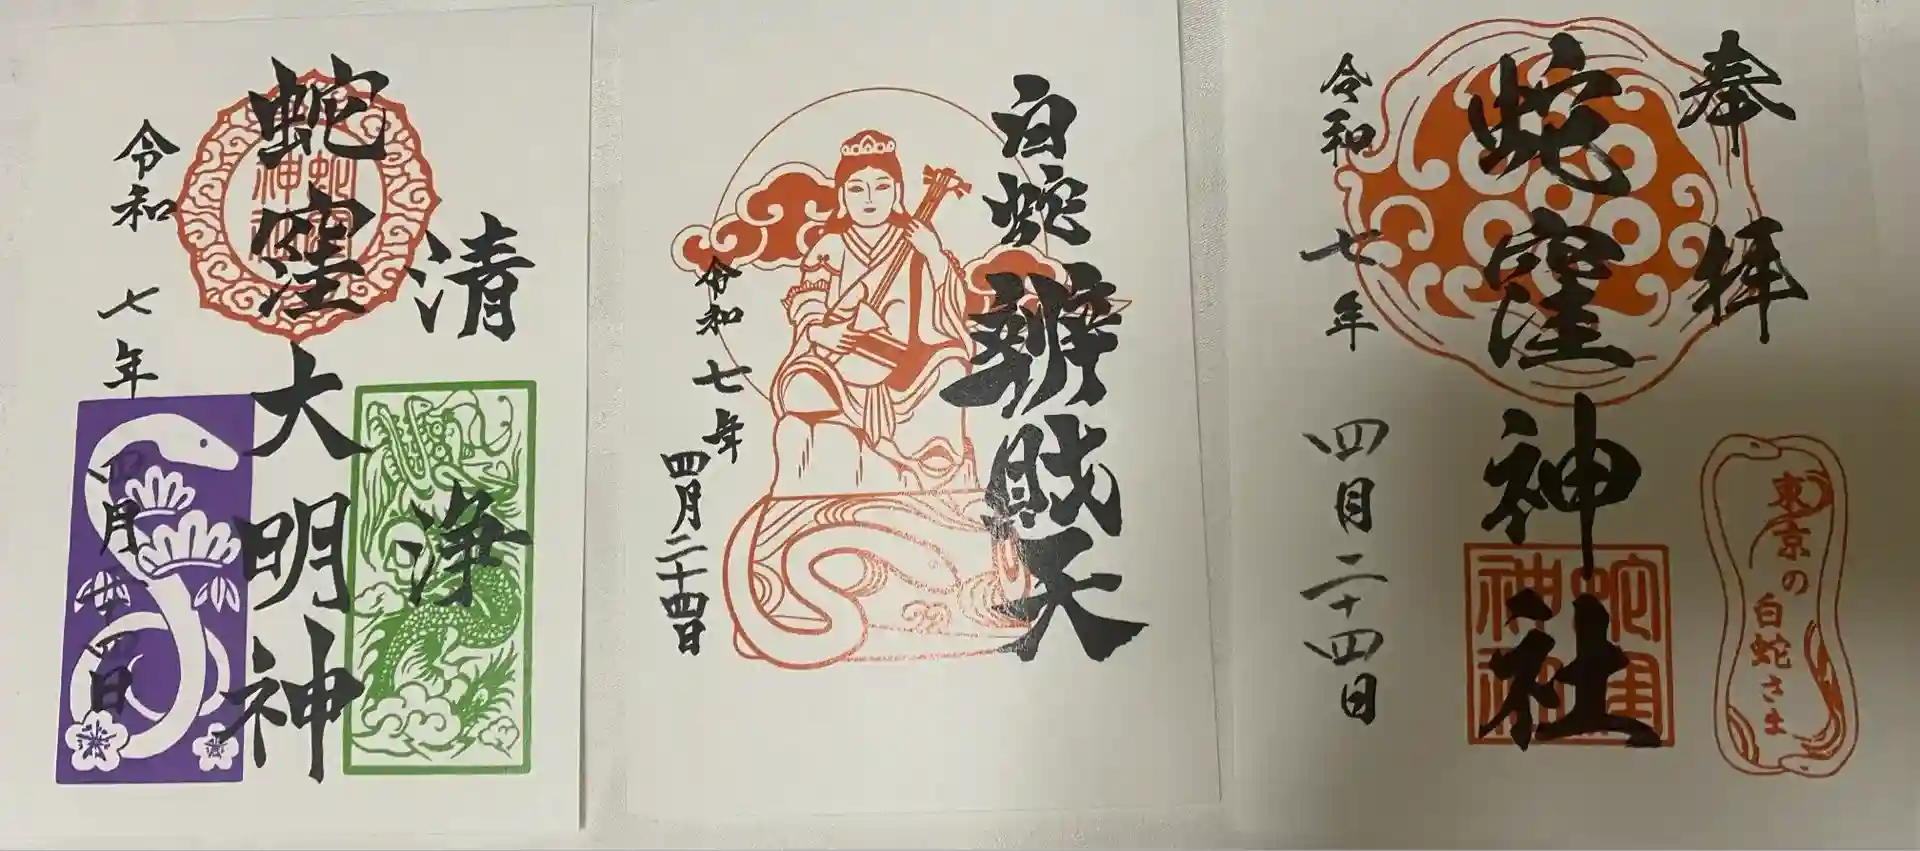 清浄
蛇窪大明神
蛇窪神社
令和七年四月廿四日
白蛇辨財天
令和七年四月二十四日
奉拝
東京の白蛇さま
蛇窪神社
蛇窪神社
令和七年四月二十四日